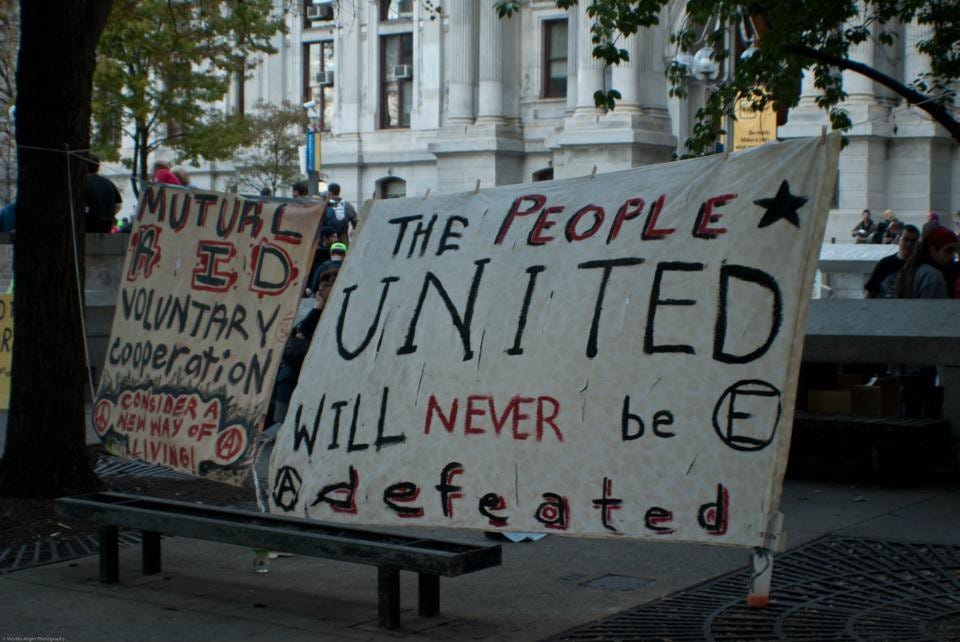 MUTUAL
AID
VOLUNTARY
cooperation
CONSIDER A
NEW WAY OF
LIVING!
A
THE PEOPLE
UNITED
WILL NEVER be E
A defeated
© Worlds Alight Photography